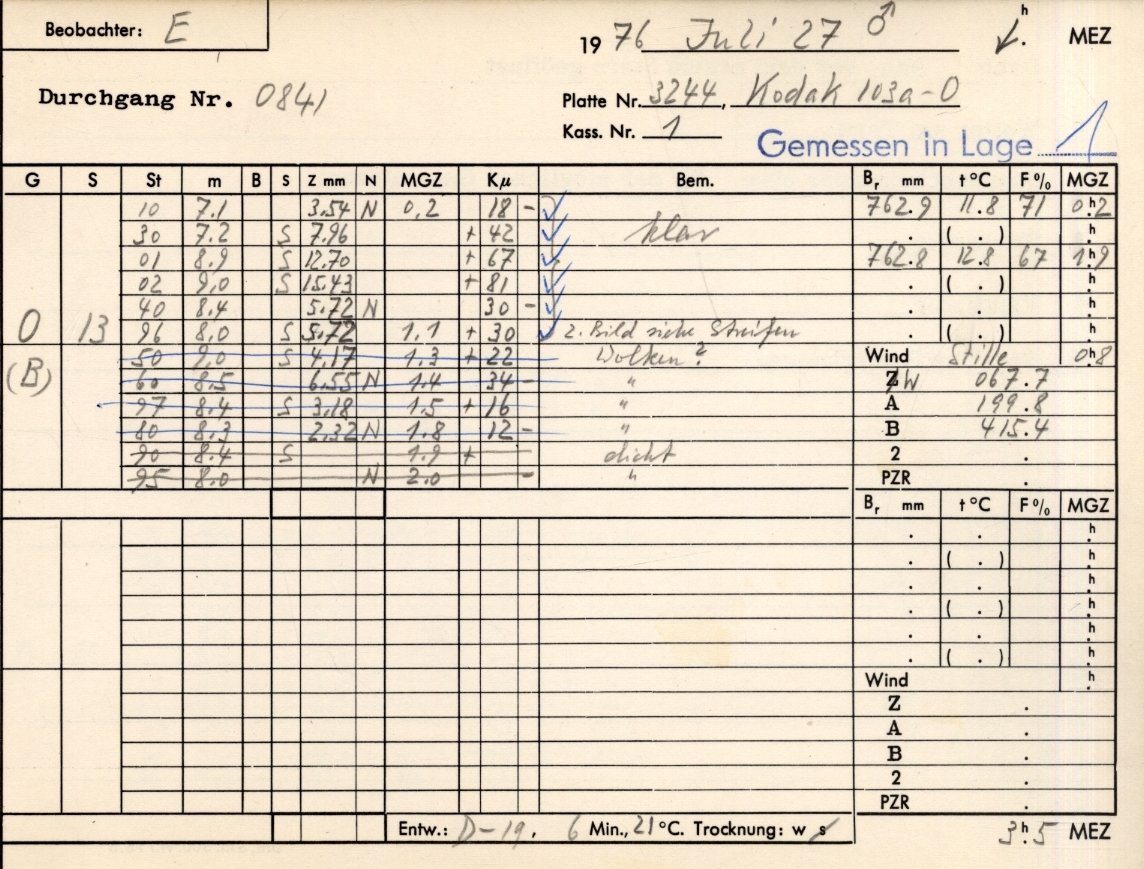 Beobachter: E
1976 Juli 27 ♂ h. MEZ
Durchgang Nr. 0841
Platte Nr. 3244, Kodak 103a-O
Kass. Nr. 1
Gemessen in Lage 1
G S St m B S Z mm N MGZ Kμ Bem. Br mm t °C F % MGZ
10 7.1 3.54 N 0,2 18 - ✓ 762.9 11.8 71 0h.2
30 7.2 S 7.96 + 42 ✓ klar . ( . ) h.
01 8.9 S 12.70 + 67 ✓ 762.8 12.8 67 1h.9
02 9,0 S 15.43 + 81 ✓ . ( . ) h.
40 8.4 5.72 N 30 - ✓ . . h.
0 13 96 8,0 S 5.72 1.1 + 30 ✓ 2. Bild siehe Streifen . ( . ) h.
(B) 50 9,0 S 4,17 1.3 + 22 Wolken? Wind Stille 0h.8
60 8.5 6.55 N 1.4 34 - " W 067.7
97 8.4 S 3,18 1.5 + 16 " A 199.8
80 8.3 2,32 N 1.8 12 - " B 415.4
90 8.4 S 1.9 + dicht 2 .
95 8.0 N 2.0 - " PZR .
Br mm t °C F % MGZ
. . h.
. ( . ) h.
. . h.
. ( . ) h.
. . h.
. ( . ) h.
Wind h.
Z .
A .
B .
2 .
PZR .
Entw.: D-19, 6 Min., 21 °C. Trocknung: w s
3h.5 MEZ